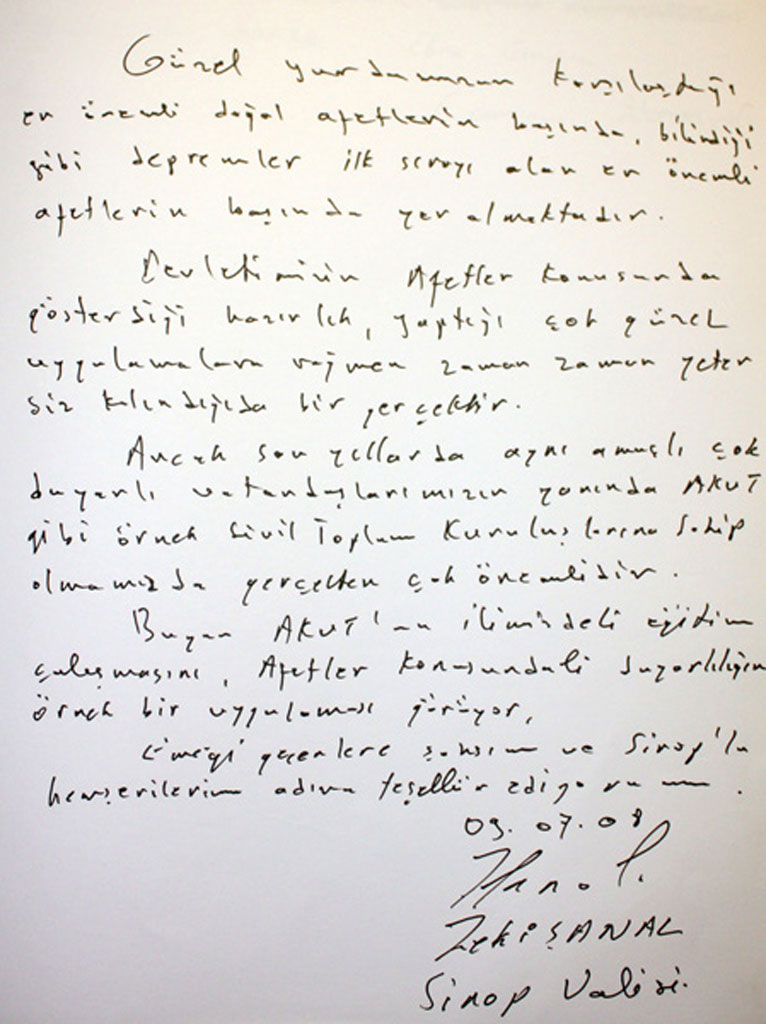 Güzel yurdumuzun karşılaştığı
en önemli doğal afetlerin başında, bilindiği
gibi depremler ilk sırayı alan en önemli
afetlerin başında yer almaktadır.
Devletimizin Afetler konusunda
gösterdiği hazırlık, yaptığı çok güzel
uygulamalara rağmen zaman zaman yeter
siz kalındığıda bir gerçektir.
Ancak son yıllarda aynı amaçlı çok
duyarlı vatandaşlarımızın yanında AKUT
gibi örnek Sivil Toplum Kuruluşlarına sahip
olmamızda gerçekten çok önemlidir.
Bugün AKUT'un ilimizdeki eğitim
çalışmasını, Afetler konusundaki duyarlılığın
örnek bir uygulaması görüyor,
Emeği geçenlere şahsım ve Sinop'lu
hemşerilerim adına teşekkür ediyorum.
09.07.08
Zeki ŞANAL
Sinop Valisi.